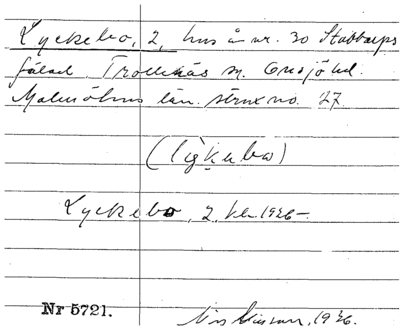 Lyckebo, 2, hus å nr. 30 Stabbarps
fälad. Trollenäs sn. Onsjö hd.
Malmöhus län. strax no. 27.
(lykebo)
Lyckebo, 2. kl. 1926-
Nr 5721.
1926.